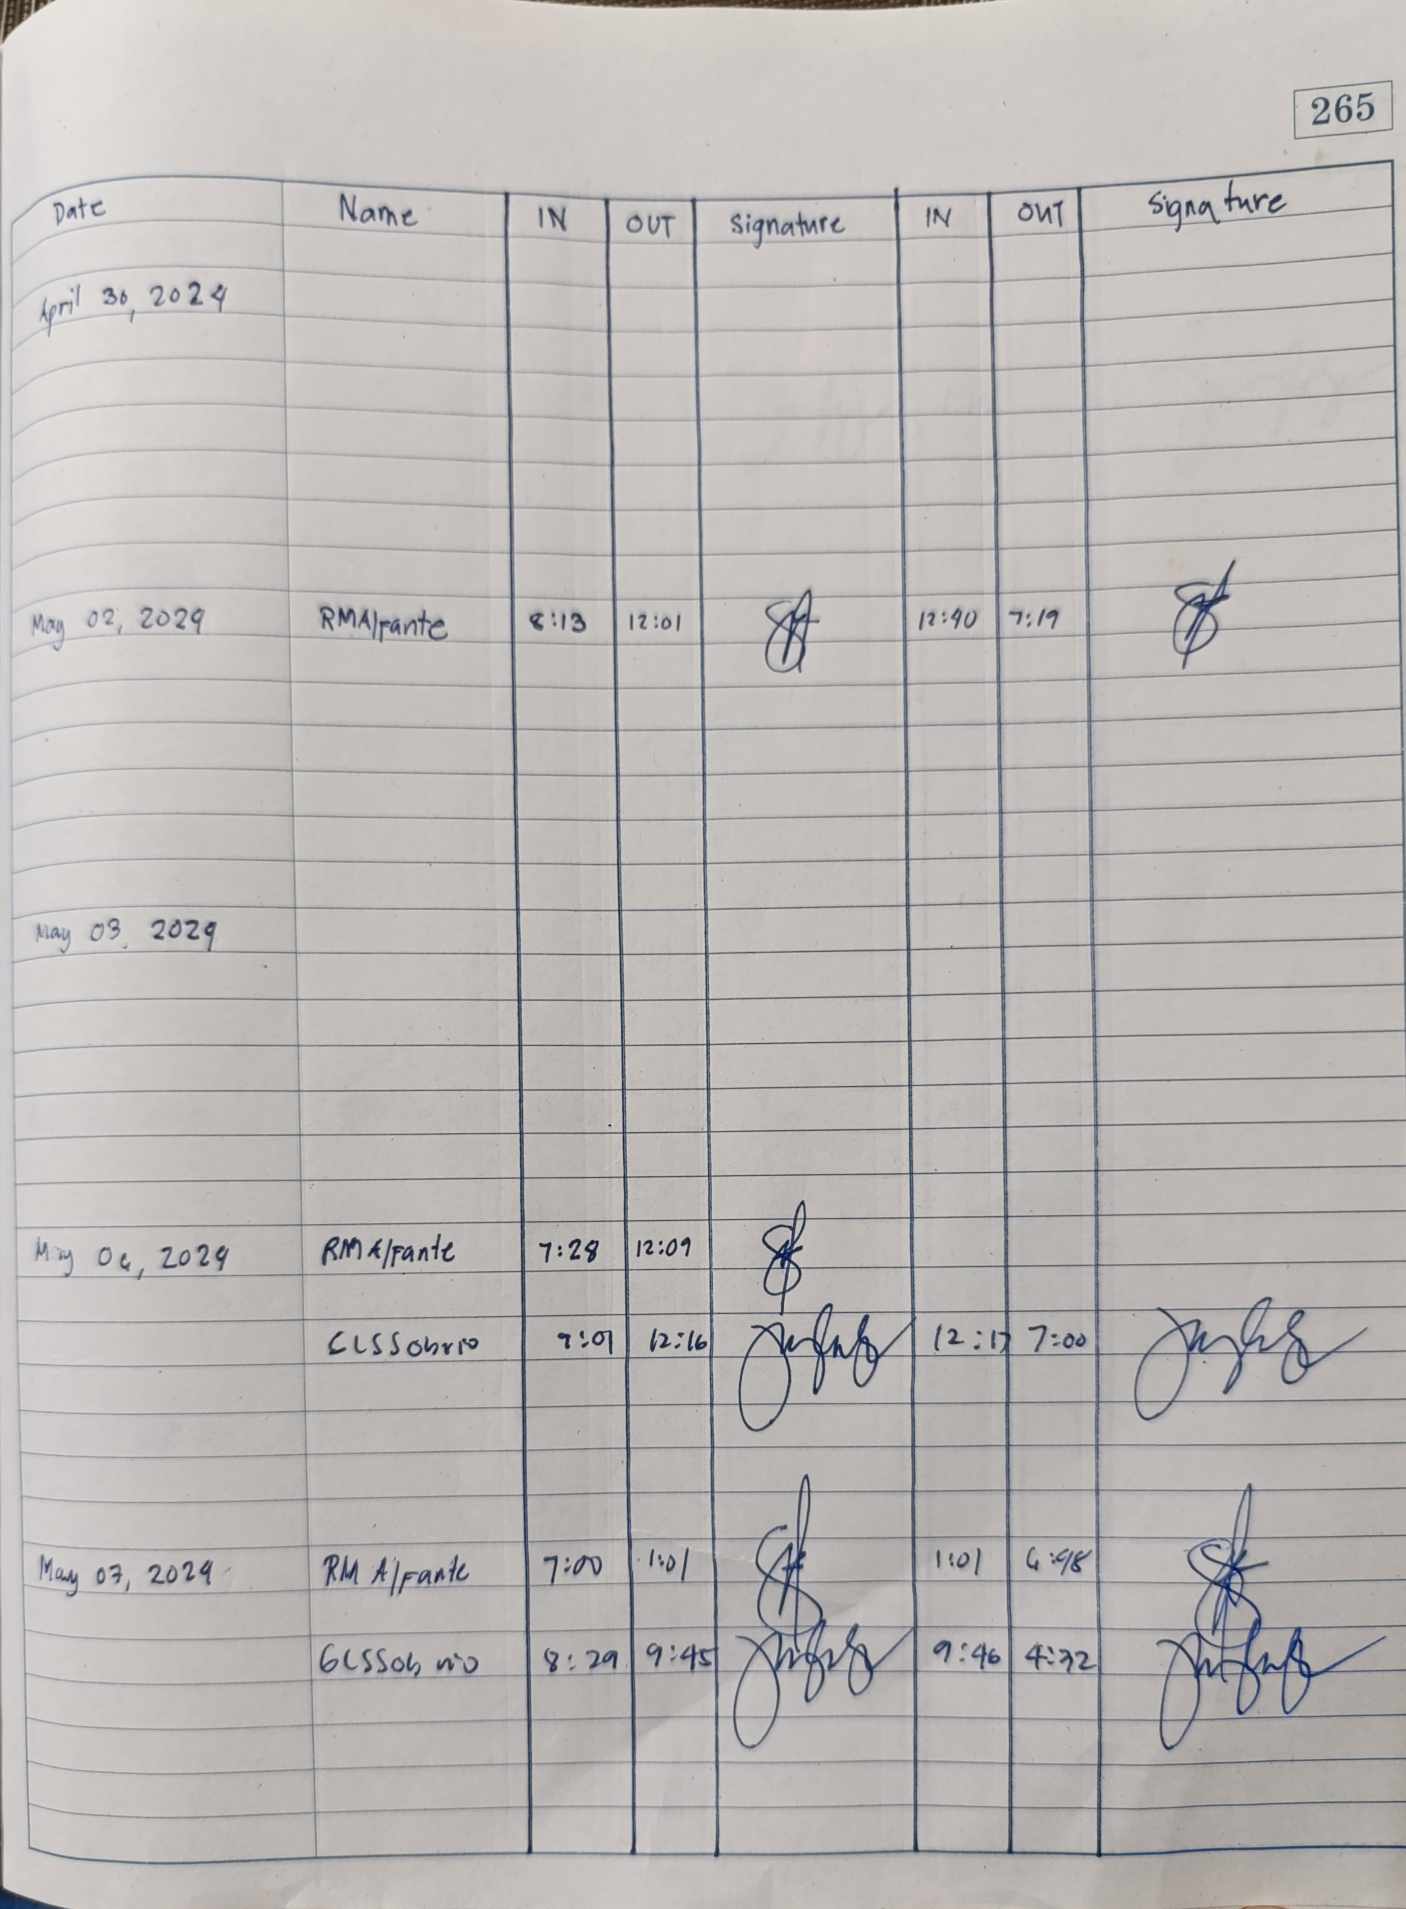 265
Date Name IN OUT Signature IN OUT Signature
April 30, 2024
May 02, 2024 RMAlfante 8:13 12:01 12:40 7:19
May 03, 2024
May 06, 2024 RMAlfante 7:28 12:09
GLSSobrio 9:01 12:16 12:17 7:00
May 07, 2024 RM Alfante 7:00 1:01 1:01 6:48
GLSSobrio 8:29 9:45 9:46 4:32